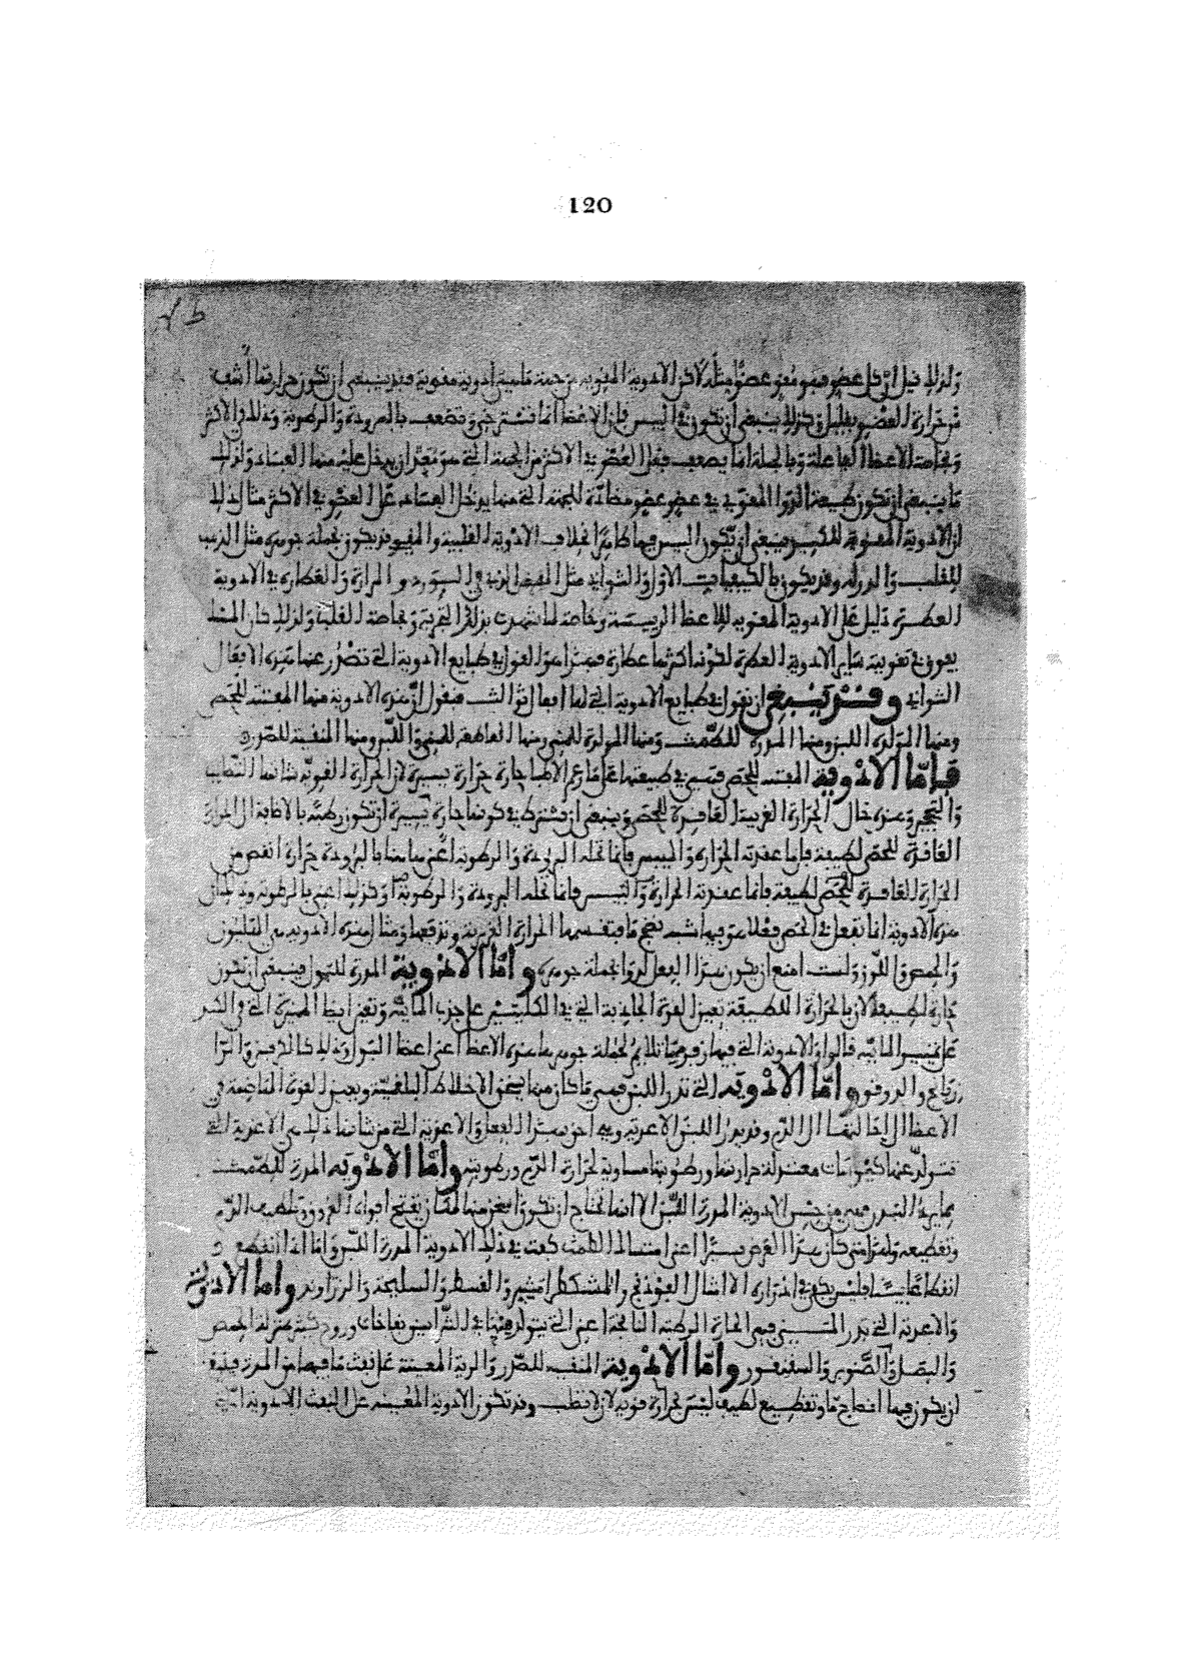 120
ولذلك قيل ان كل عضو فهو مقو عضوا مثله لاكن الادوية المقوية من جهة ما هي ادوية مقوية فقد ينبغي ان تكون حرارتها أشف
من حرارة العضو بقليل وكذلك ينبغي ان تكون في اليبس فان الاعضا انما تسترخي وتضعف بالبرودة والرطوبة وذلك في الاكثر
وبخاصة الاعضا الفاعلة وبالجملة انما يضعف فعل العضو في الاكثر من الجهة التي هو معد ان يدخل عليه منها الفساد ولذلك
ما ينبغي ان تكون طبيعة الدوا المقوي في عضو عضو مضادة للجهة التي منها يدخل الفساد على العضو في الاكثر مثال ذلك
ان الادوية المقوية للكبد ينبغي ان تكون اليبس فيها ظاهرا بخلاف الادوية القلبية والمقوي قد يكون بجملة جوهره مثل الذهب
للقلب وقد يكون بالكيفيات الاول والثواني مثل القبض الذي في الورد والمرارة والعطارة في الادوية
العطرة دليل على الادوية المقوية للاعضا الرئيسة وخاصة لما شهدت بذلك التجربة وبخاصة للقلب ولذلك كان المسك
يفوق في تقوية ساير الادوية العطرة لكونه اكثرها عطارة فهذا هو القول في طبايع الادوية التي تصدر عنها هذه الافعال
الثواني وقد ينبغي ان نقول في طبايع الادوية التي لها افعال ثوالث فنقول ان هذه الادوية منها المفتتة للحصى
ومنها المولدة اللبن ومنها المدرة للطمث ومنها المولدة للمني ومنها القاطعة للمني واللبن ومنها المنقية للصدر
فاما الادوية المفتتة للحصى فهي في طبيعتها على ما زعم الاطبا حارة حرارة يسيرة لان الحرارة القوية شانها التصليب
والتحجير وهذه حال الحرارة الغريبة العاقدة للحصى وينبغي ان تشترك في كونها حارة يسيرة ان تكون رطبة بالاضافة الى الحرارة
العاقدة للحصى لطيفة فان ما عقدته الحرارة واليبس فانما تحله البرودة والرطوبة اعني هاهنا بالبرودة حرارة انقص من
الحرارة العاقدة للحصى لطيفة فانما عقدته الحرارة واليبس فانما تحله البرودة والرطوبة وكذلك اعني بالرطوبة
هذه الادوية انما تفعل في الحصى فعلا هو فيها شبه نضج ما فتقسمها الحرارة الغريزية وتدفعها ومثال هذه الادوية هي الهليون
والحمص واللوز ولست امنع ان يكون هذا الفعل لدوا بجملة جوهره واما الادوية المدرة للبول فينبغي ان تكون
حارة لطيفة لان بالحرارة اللطيفة تعين القوة الجاذبة التي في الكليتين على جذب المائية وتعين ايضا المميزة التي في الكبد
على تمييز المائية قالوا والادوية التي فيها زفومية تلائم بجملة جوهرها هذه الاعضا اعني اعضا البول وذلك كالكرفس والرا
زيانج والدوقو واما الادوية التي تدر اللبن فهي ما كان منها يسخن الاخلاط البلغمية ويعين القوة الهاضمة في
الاعضا التي الى الدم وقد يدر اللبن الاغذية وهي احق بهذا الفعل والاغذية التي من شانها ذلك هي الاغذية التي
تتولد عنها كيموسات معتدلة حرارتها ورطوبتها مساوية لحرارة الدم ورطوبته واما الادوية المدرة للطمث
فهي من جنس الادوية المدرة اللبن الا انها تحتاج ان تكون اسخن منها لمكان تفتيح افواه العروق وتلطيف الدم
وتقطيعه ولهذا متى كان هذا الغرض يسيرا اعني امتساك الطمث كفت في ذلك الادوية المدرة اللبن واما اذا انقطع
انقطاعا فليس يكفي في ادراره الا امثال الفوذنج والمشكطرامشير والقسط والسليخة والزراوند واما الادوية
والاغذية التي تدر المني فهي الحارة الرطبة النافخة اعني التي يتولد منها في الشرايين نفاخات وروح كثير بمنزلة الحمص
والبصل والصنوبر والسقنقور واما الادوية المنقية للصدر والرية المعينة على نفث ما فيها من المدة فينبغي
ان يكون فيها انضاج ما وتقطيع لطيف ليس بحرارة قوية لان لا تصلب وقد تكون الادوية المعينة على النفث الادوية